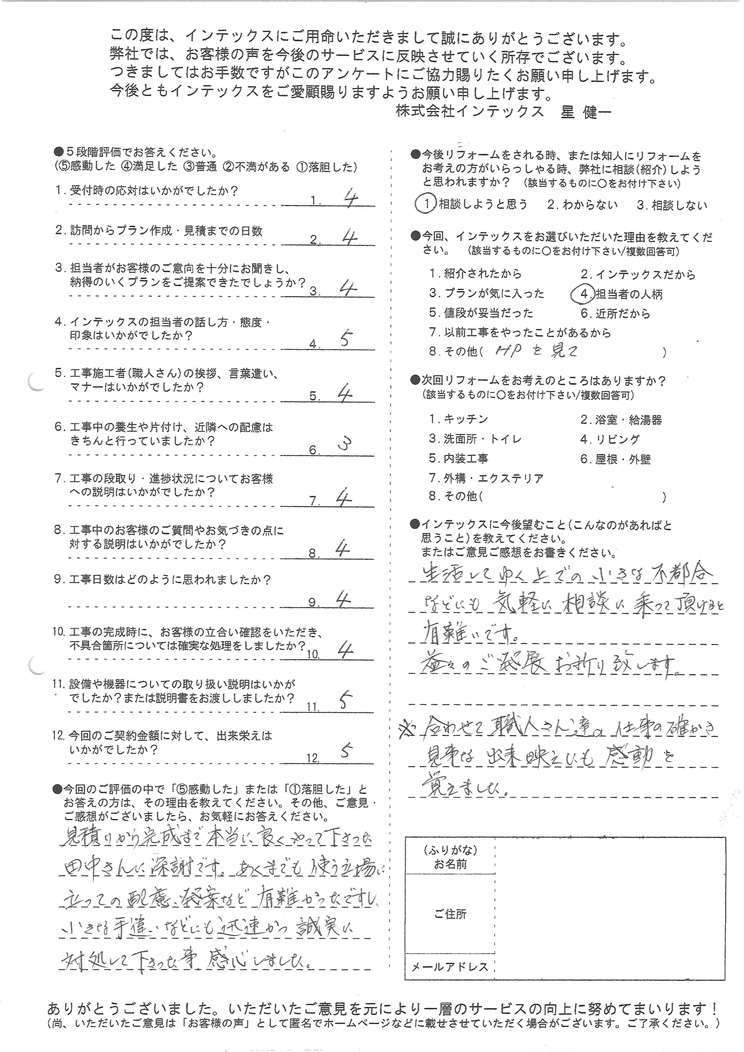 この度は、インテックスにご用命いただきまして誠にありがとうございます。
弊社では、お客様の声を今後のサービスに反映させていく所存でございます。
つきましてはお手数ですがこのアンケートにご協力賜りたくお願い申し上げます。
今後ともインテックスをご愛顧賜りますようお願い申し上げます。
株式会社インテックス 星 健一
●5段階評価でお答えください。
(⑤感動した ④満足した ③普通 ②不満がある ①落胆した)
1. 受付時の応対はいかがでしたか?
1. 4
2. 訪問からプラン作成・見積までの日数
2. 4
3. 担当者がお客様のご意向を十分にお聞きし、
納得のいくプランをご提案できたでしょうか?
3. 4
4. インテックスの担当者の話し方・態度・
印象はいかがでしたか?
4. 5
5. 工事施工者(職人さん)の挨拶、言葉遣い、
マナーはいかがでしたか?
5. 4
6. 工事中の養生や片付け、近隣への配慮は
きちんと行っていましたか?
6. 3
7. 工事の段取り・進捗状況についてお客様
への説明はいかがでしたか?
7. 4
8. 工事中のお客様のご質問やお気づきの点に
対する説明はいかがでしたか?
8. 4
9. 工事日数はどのように思われましたか?
9. 4
10. 工事の完成時に、お客様の立合い確認をいただき、
不具合箇所については確実な処理をしましたか?
10. 4
11. 設備や機器についての取り扱い説明はいかが
でしたか?または説明書をお渡ししましたか?
11. 5
12. 今回のご契約金額に対して、出来栄えは
いかがでしたか?
12. 5
●今回のご評価の中で「⑤感動した」または「①落胆した」と
お答えの方は、その理由を教えてください。その他、ご意見・
ご感想がございましたら、お気軽にお答えください。
見積りから完成まで本当に良くやって下さった
田中さんに深謝です。あくまでも使う立場に
立っての配慮、発案など有難かったですし、
小さな手違いなどにも迅速かつ誠実に
対処して下さった事感心しました。
●今後リフォームをされる時、または知人にリフォームを
お考えの方がいらっしゃる時、弊社に相談(紹介)しよう
と思われますか? (該当するものに○をお付け下さい)
①相談しようと思う 2. わからない 3. 相談しない
●今回、インテックスをお選びいただいた理由を教えてくだ
さい。 (該当するものに○をお付け下さい/複数回答可)
1. 紹介されたから 2. インテックスだから
3. プランが気に入った ④担当者の人柄
5. 値段が妥当だった 6. 近所だから
7. 以前工事をやったことがあるから
8. その他( HPを見て )
●次回リフォームをお考えのところはありますか?
(該当するものに○をお付け下さい/複数回答可)
1. キッチン 2. 浴室・給湯器
3. 洗面所・トイレ 4. リビング
5. 内装工事 6. 屋根・外壁
7. 外構・エクステリア
8. その他( )
●インテックスに今後望むこと(こんなのがあればと
思うこと)を教えてください。
またはご意見ご感想をお書きください。
生活してゆく上での小さな不都合
などにも気軽に相談に乗って頂けると
有難いです。
益々のご発展お祈り致します。
※合わせて職人さん達の仕事の確かさ
見事な出来映えにも感動を
覚えました。
(ふりがな)
お名前
ご住所
メールアドレス
ありがとうございました。いただいたご意見を元により一層のサービスの向上に努めてまいります!
(尚、いただいたご意見は「お客様の声」として匿名でホームページなどに載せさせていただく場合がございます。ご了承ください。)